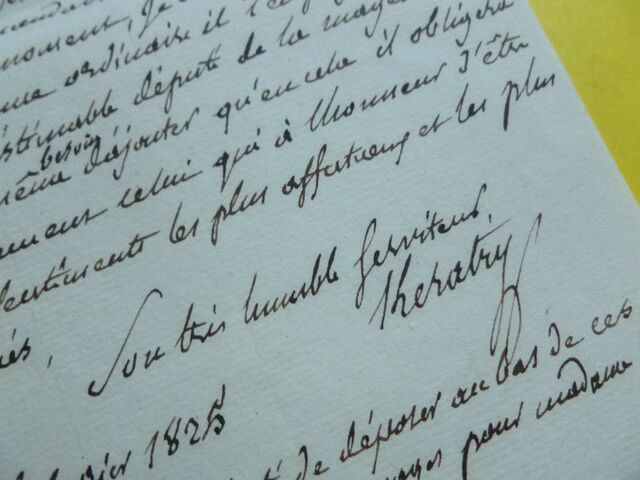 moment, je
ordinaire il
estimable député de la
besoin
même d'ajouter qu'en cela il obligera
celui qui à l'honneur d'être
sentiments les plus affectueux et les plus
Son très humble serviteur,
Keratry
février 1825
de déposer au bas de ces
pour madame